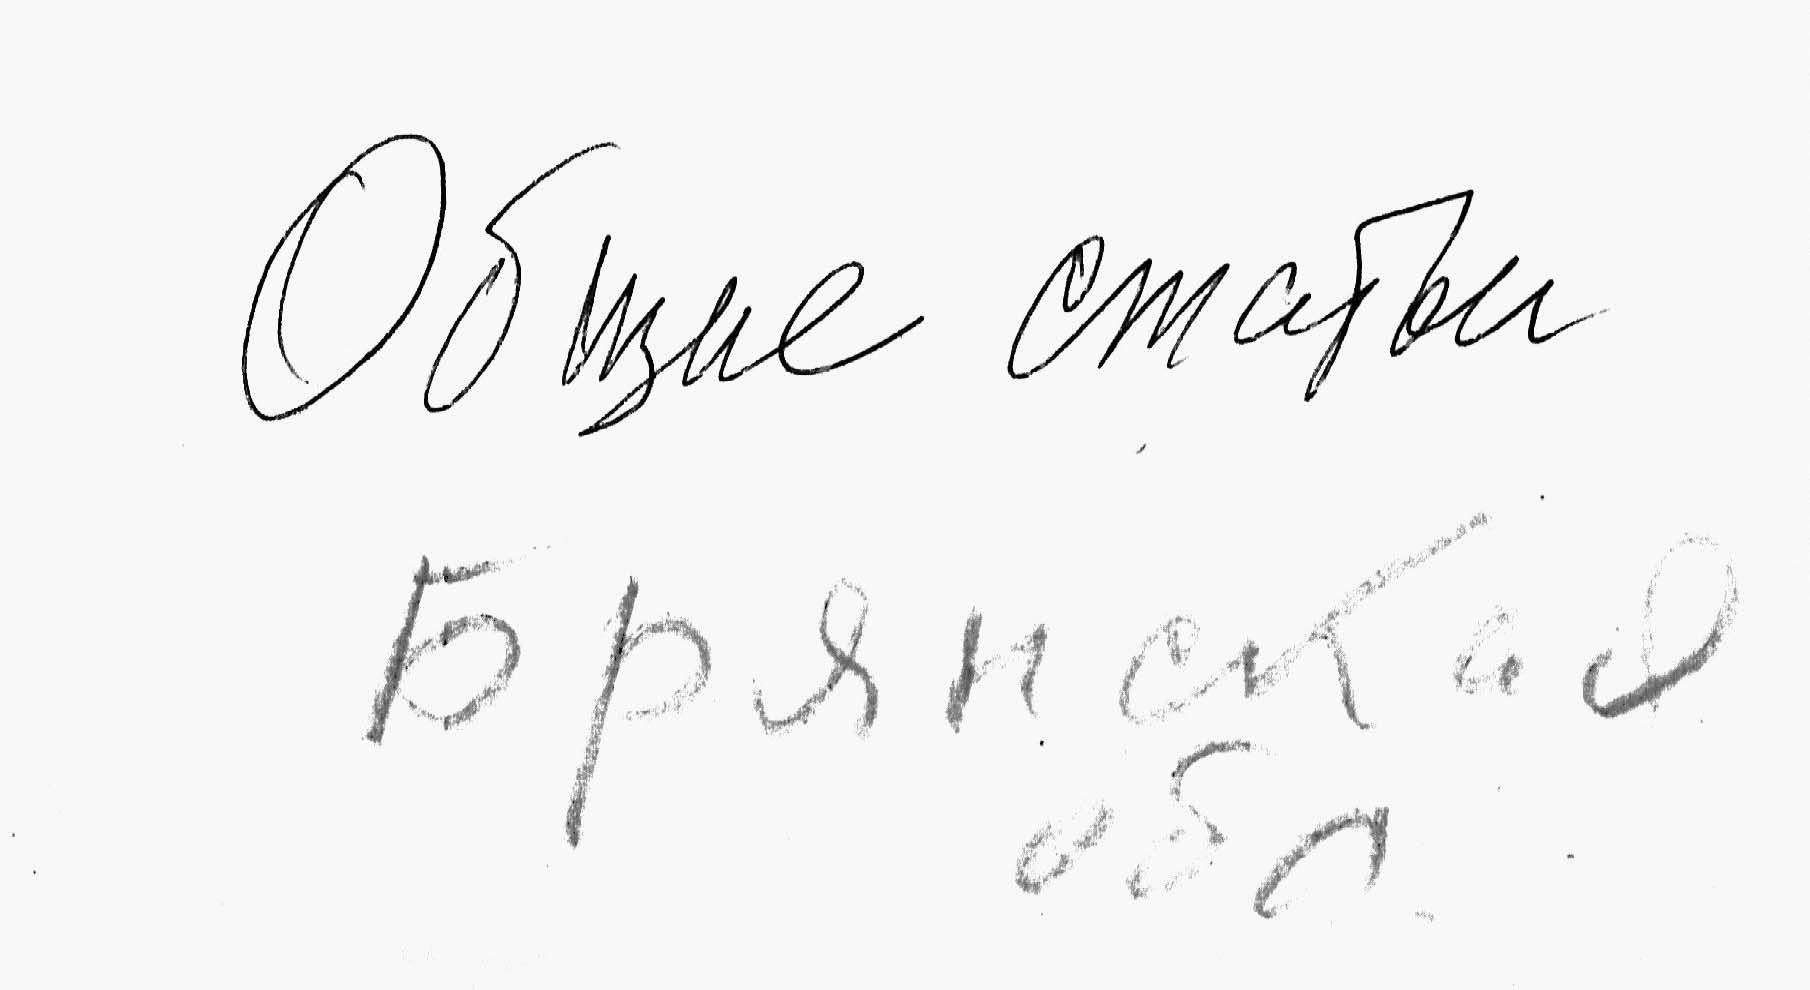 Общие статьи
Брянская
обл.